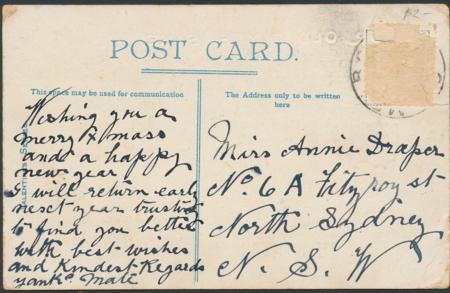 £2-
POST CARD.
This space may be used for communication
The Address only to be written
here
VALENTINE'S SERIES
Wishing you a
merry X mass
and a happy
new year
I will return early
nesct year trusting
to find you better
with best wishes
and Kyndest Regards
yanks Mate
Miss Annie Draper
No. 6 A Fitzroy st
North Sydney
N. S. W